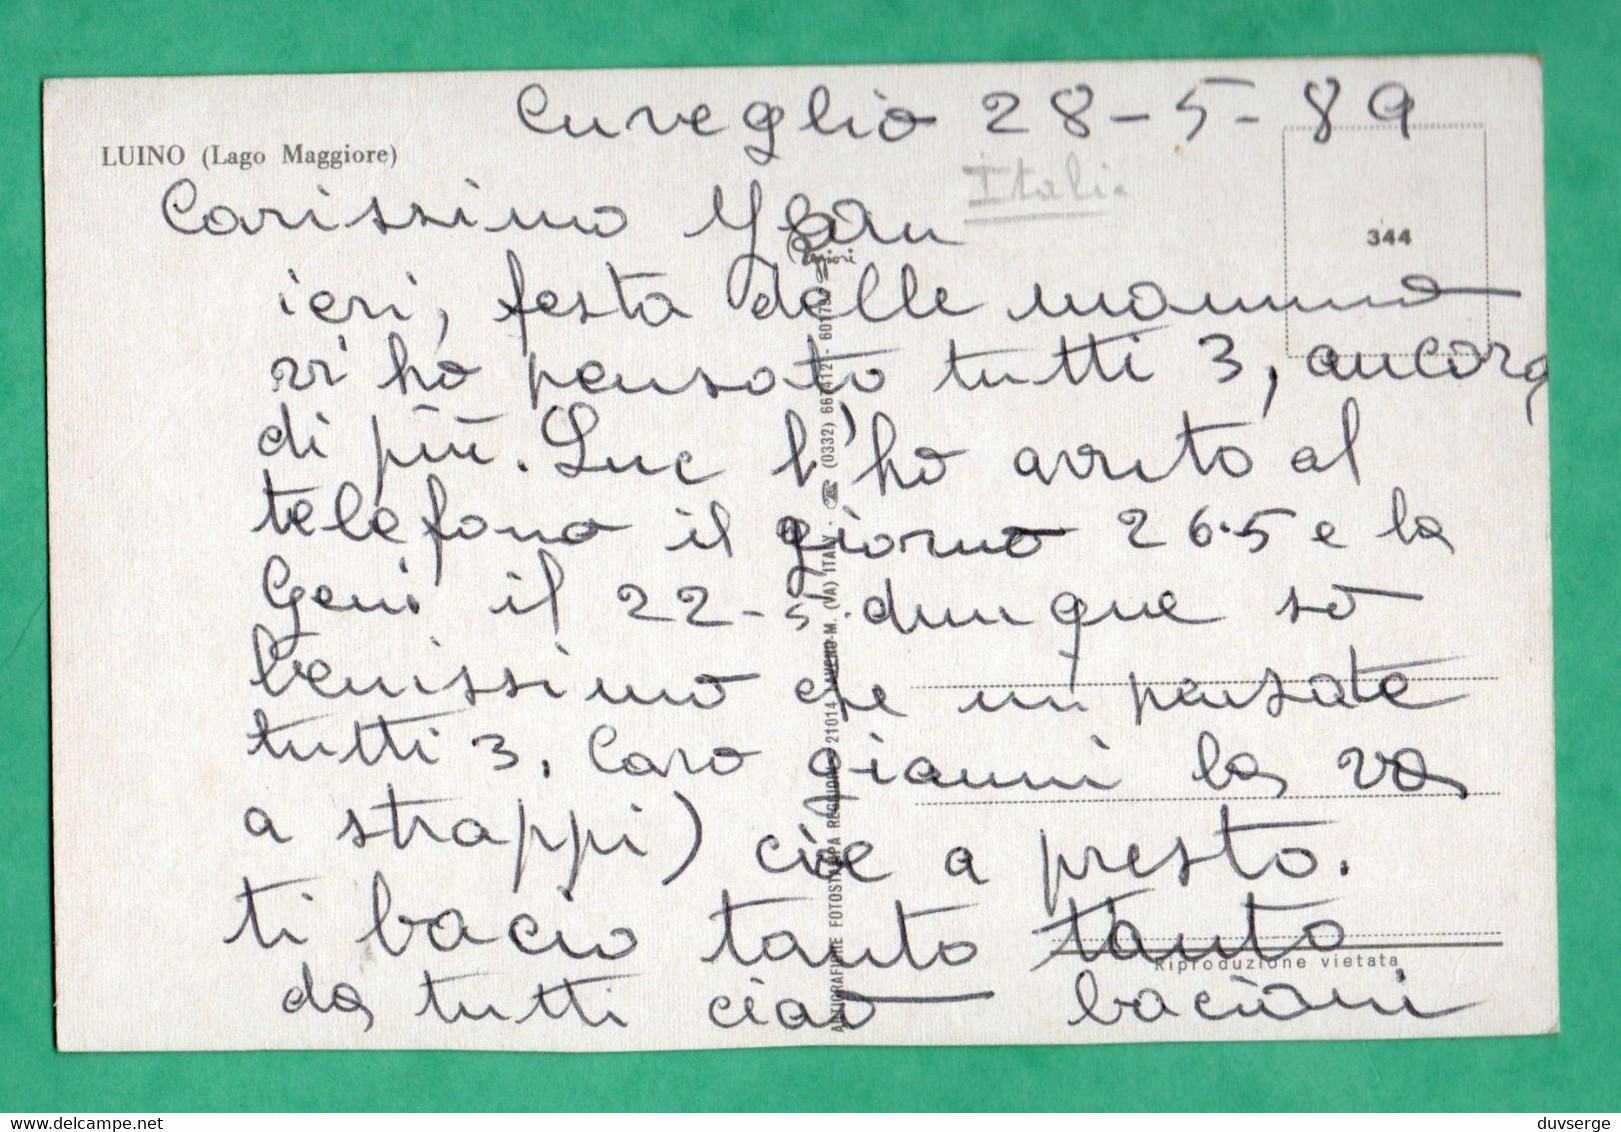 Cuveglio 28-5-89
LUINO (Lago Maggiore)
Italia
Carissimo Jean
344
ieri, festa delle mamme
vi ho pensato tutti 3, ancora
di più. Luc l'ho avuto al
telefono il giorno 26-5 e la
Geni il 22-5. dunque so
benissimo che mi pensate
tutti 3. Caro gianni la va
a strappi) cioe a presto.
ti bacio tanto tanto
Riproduzione vietata
da tutti ciao bacioni
FOTOSTAMPA REGGIORI - 21014 LAVENO M. (VA) ITALY - ☎ (0332) 667412 -
duvserge